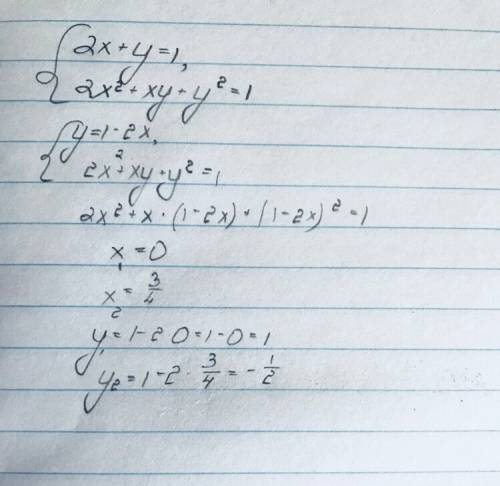 {2x+y=1,
2x²+xy+y²=1
{y=1-2x,
2x²+xy+y²=1
2x²+x·(1-2x)+(1-2x)²=1
x₁=0
x₂=3/4
y₁=1-2·0=1-0=1
y₂=1-2·3/4=-1/2